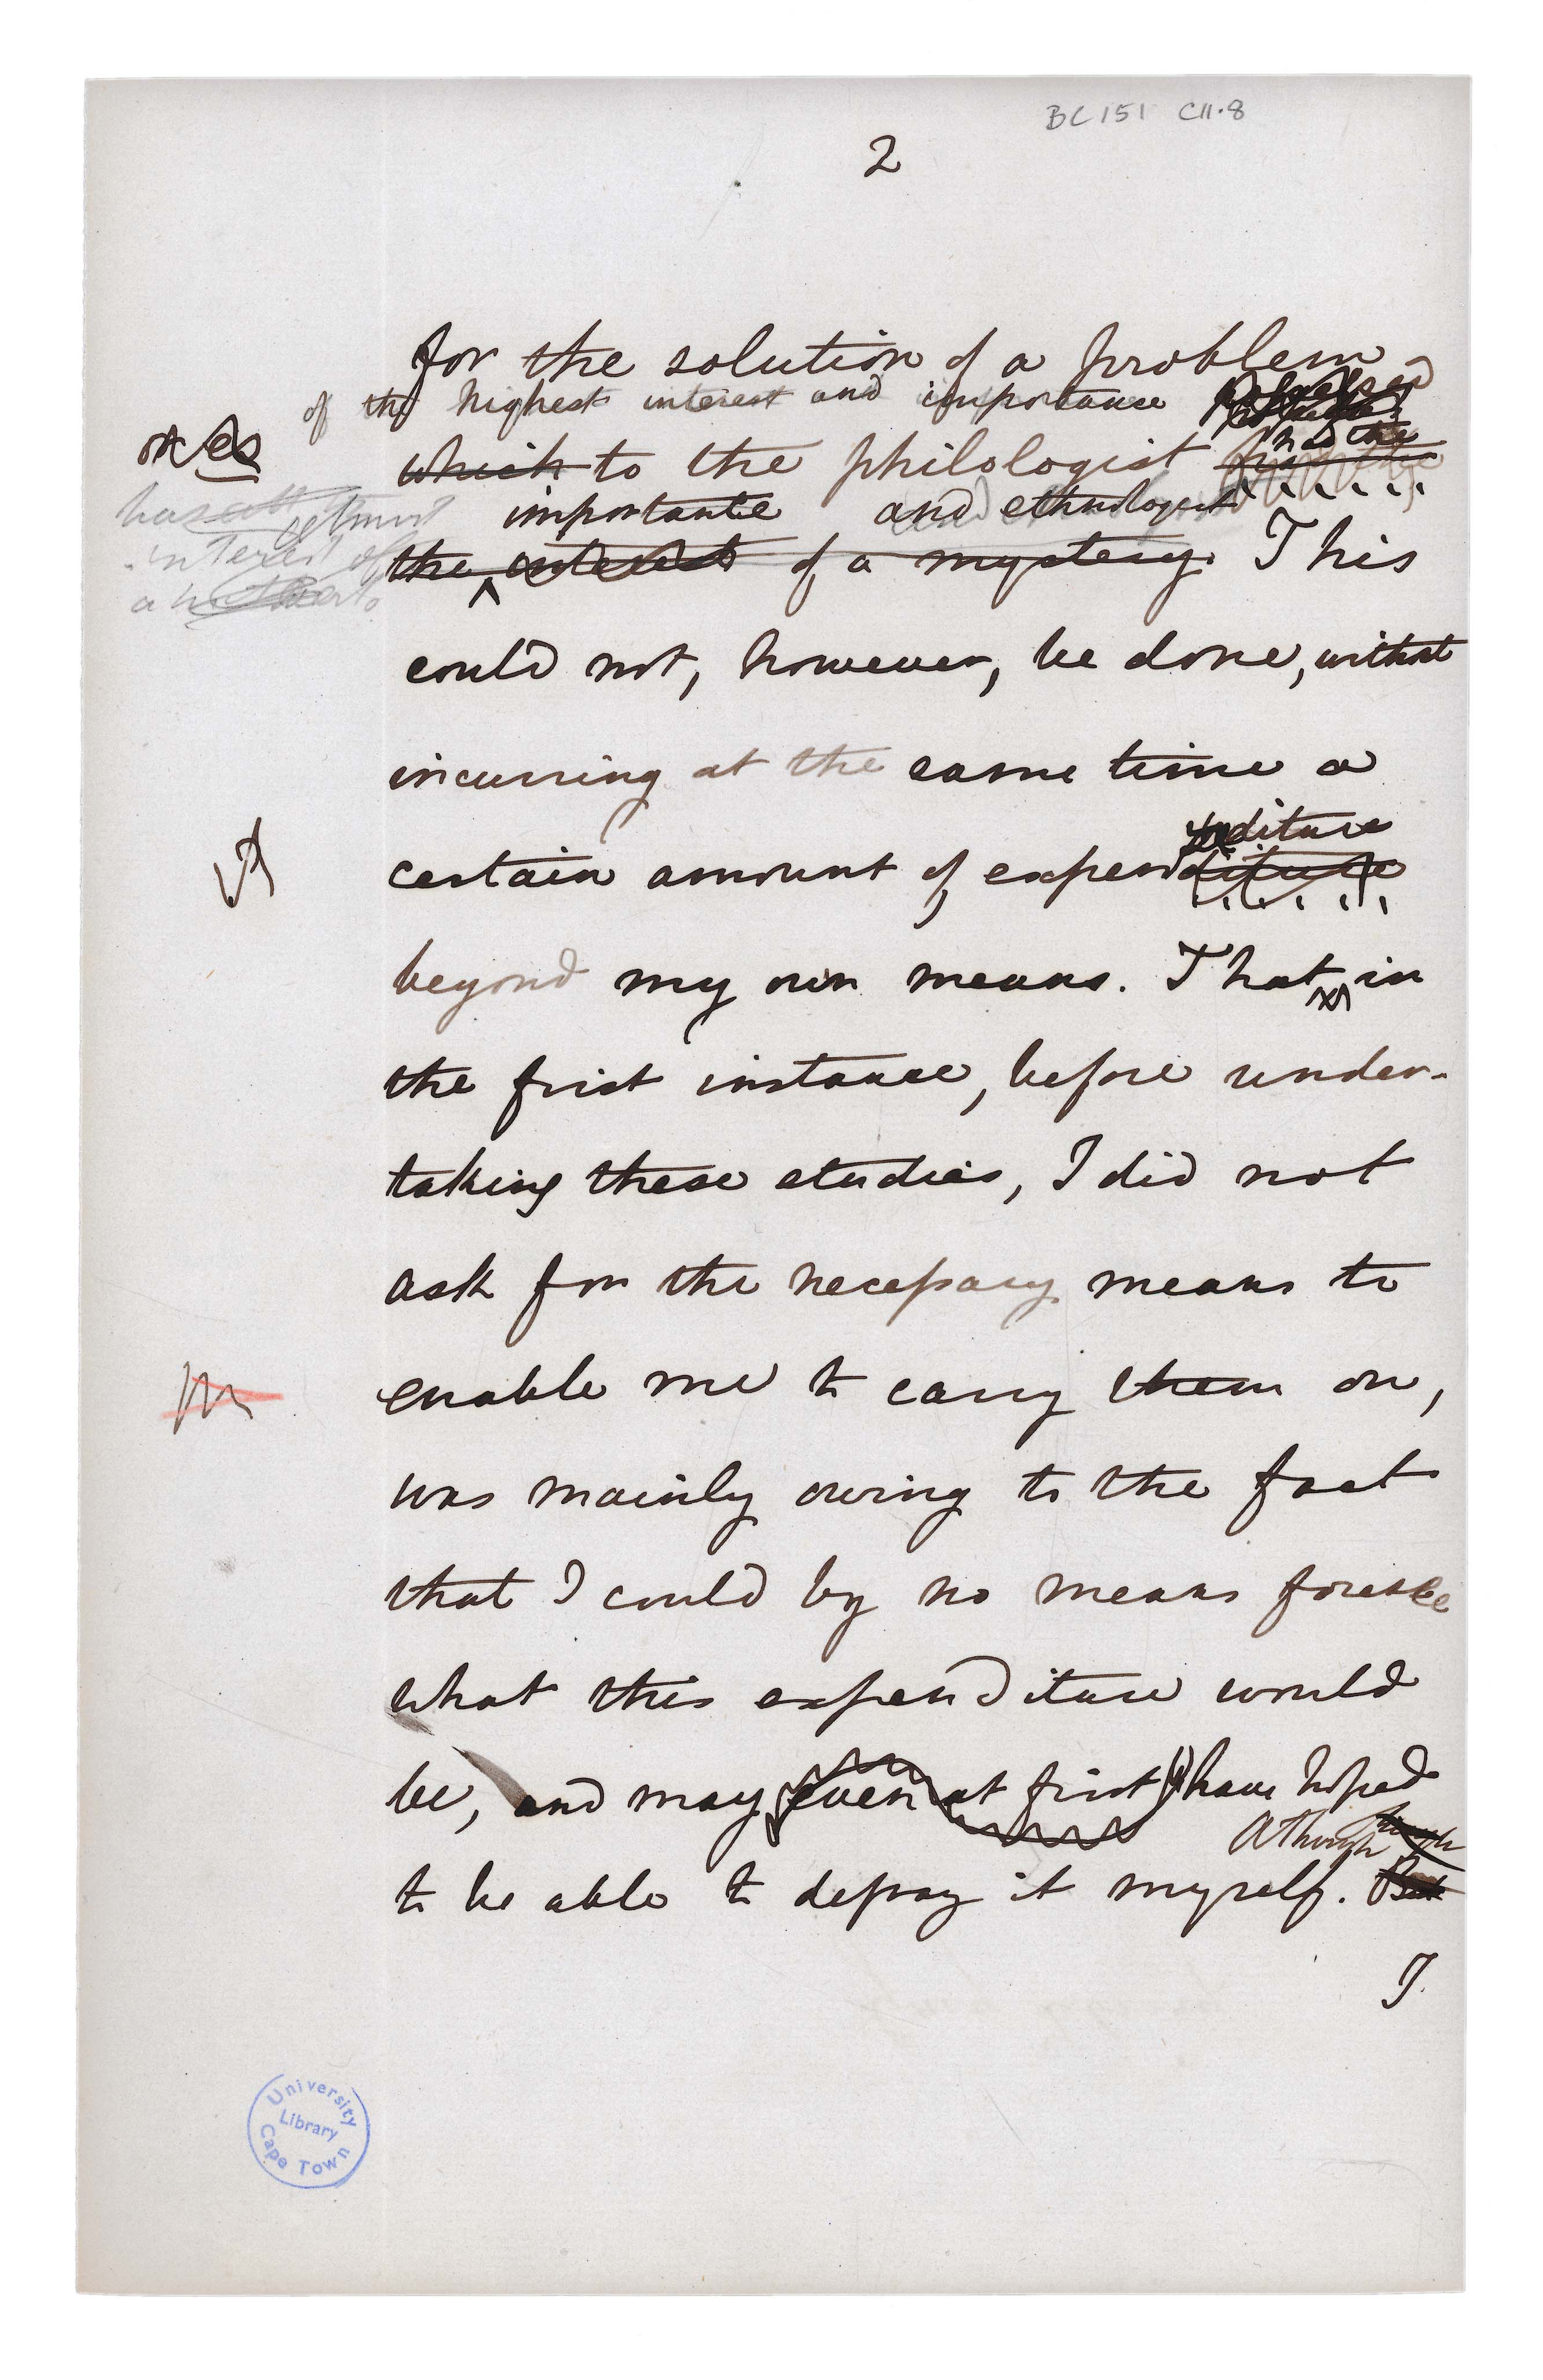 BC 151 C11.8
2
for the solution of a problem
of the highest interest and importance
which to the philologist
has the
importante and ethnologist
the interest of a mystery. This
could not, however, be done, without
incurring at the same time a
diture
certain amount of expenditure
beyond my own means. That in
the first instance, before under-
taking these studies, I did not
ask for the necessary means to
enable me to carry them on,
was mainly owing to the fact
that I could by no means foresee
what this expenditure would
be, and may even at first have hoped
Athough
to be able to defray it myself. But
I
University Library Cape Town